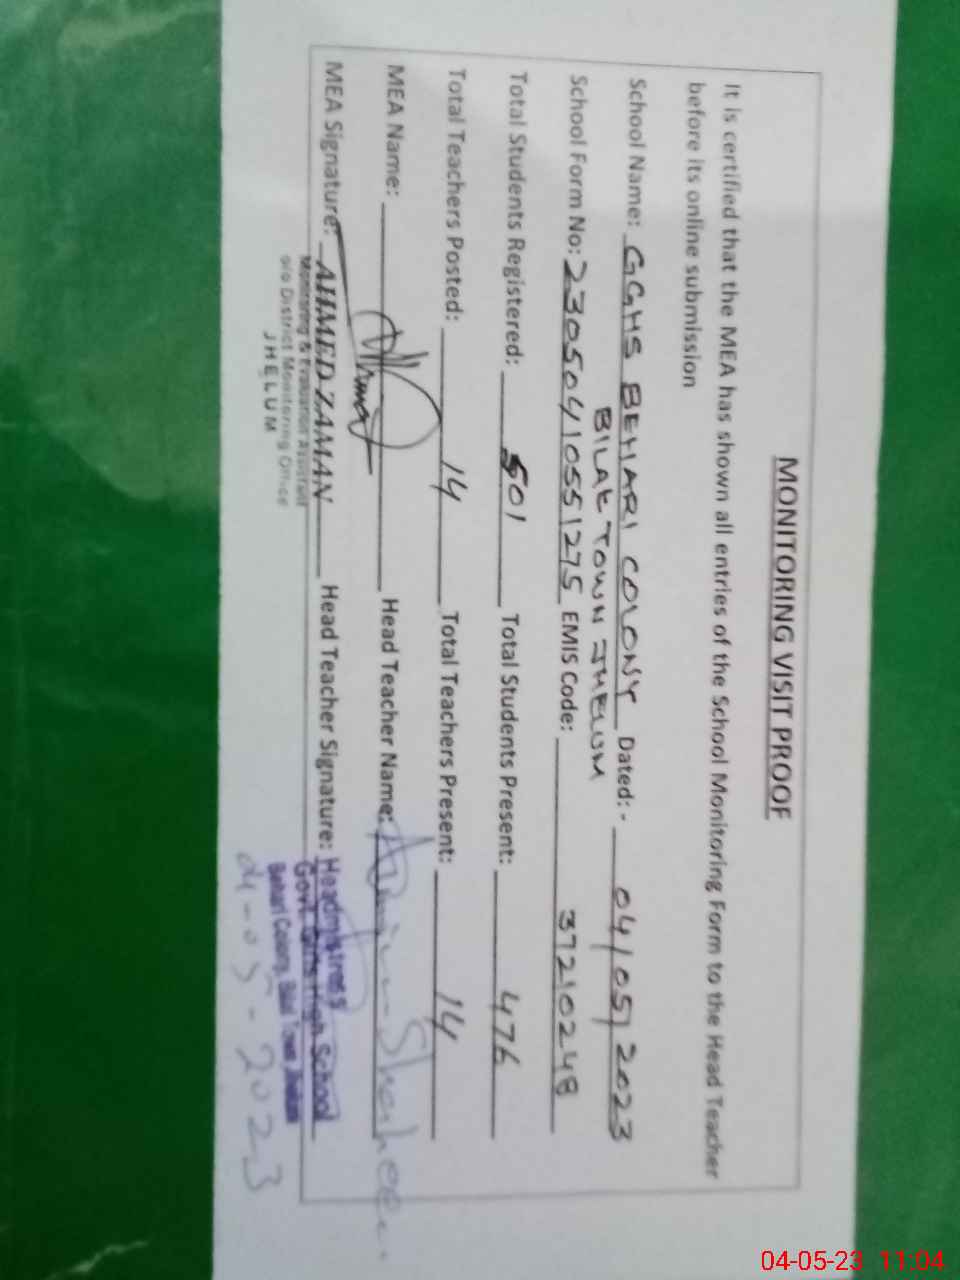 MONITORING VISIT PROOF
It is certified that the MEA has shown all entries of the School Monitoring Form to the Head Teacher
before its online submission
School Name: GGHS BEHARI COLONY Dated: - 04/05/2023
BILAL TOWN JHELUM
School Form No: 23050410551275 EMIS Code: 37210248
Total Students Registered: 501 Total Students Present: 476
Total Teachers Posted: 14 Total Teachers Present: 14
MEA Name: Head Teacher Name: Shaheen
MEA Signature: AHMED ZAMAN Head Teacher Signature: Headmistress
Monitoring & Evaluation Assistant Govt. Girls High School
o/o District Monitoring Office Behari Colony, Bilal Town, Jhelum
JHELUM
04-05-2023
04-05-23 11:04